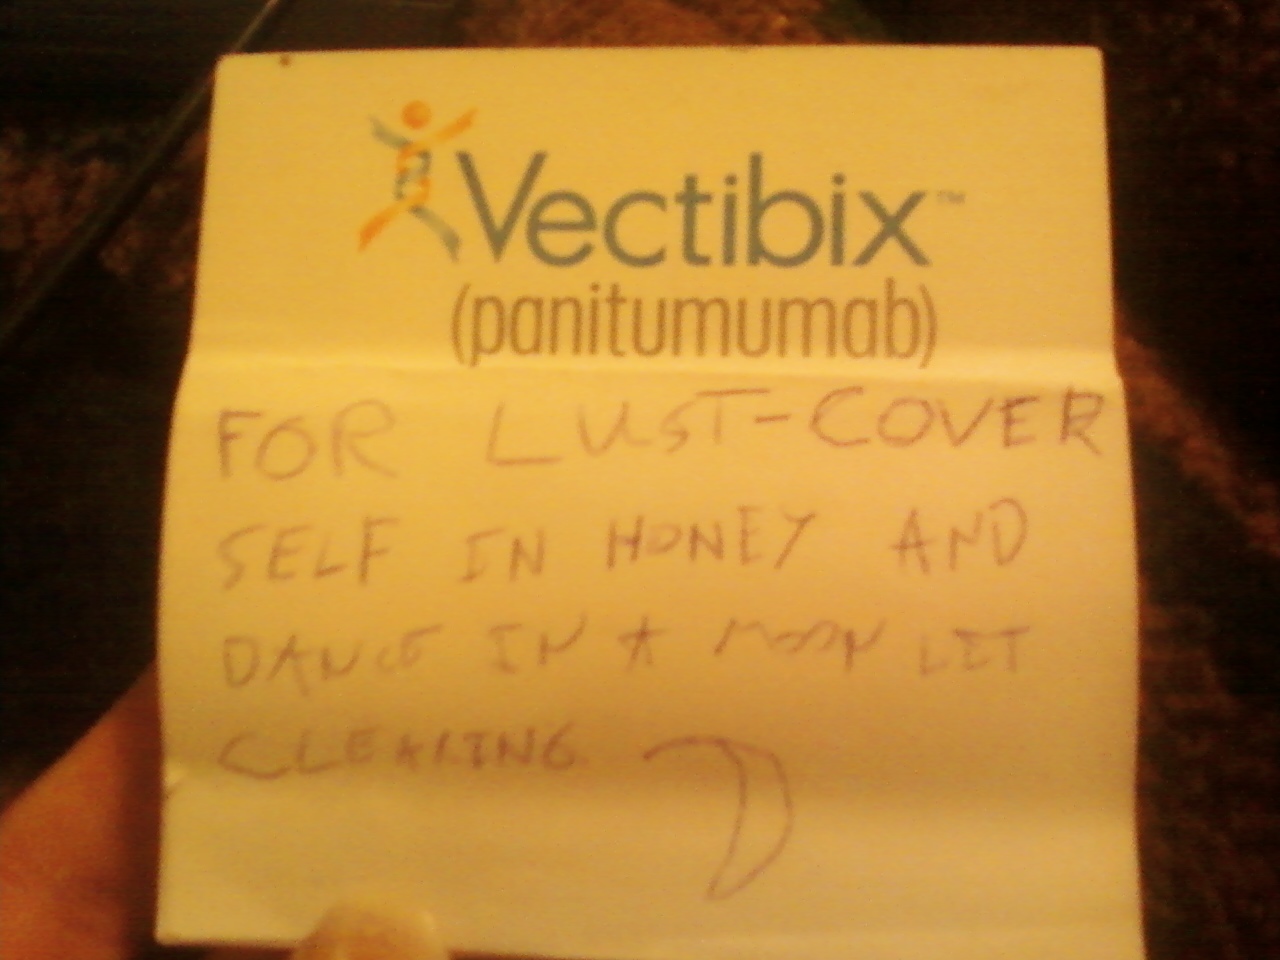 Vectibix™
(panitumumab)
FOR LUST-COVER
SELF IN HONEY AND
DANCE IN A MOON LIT
CLEARING